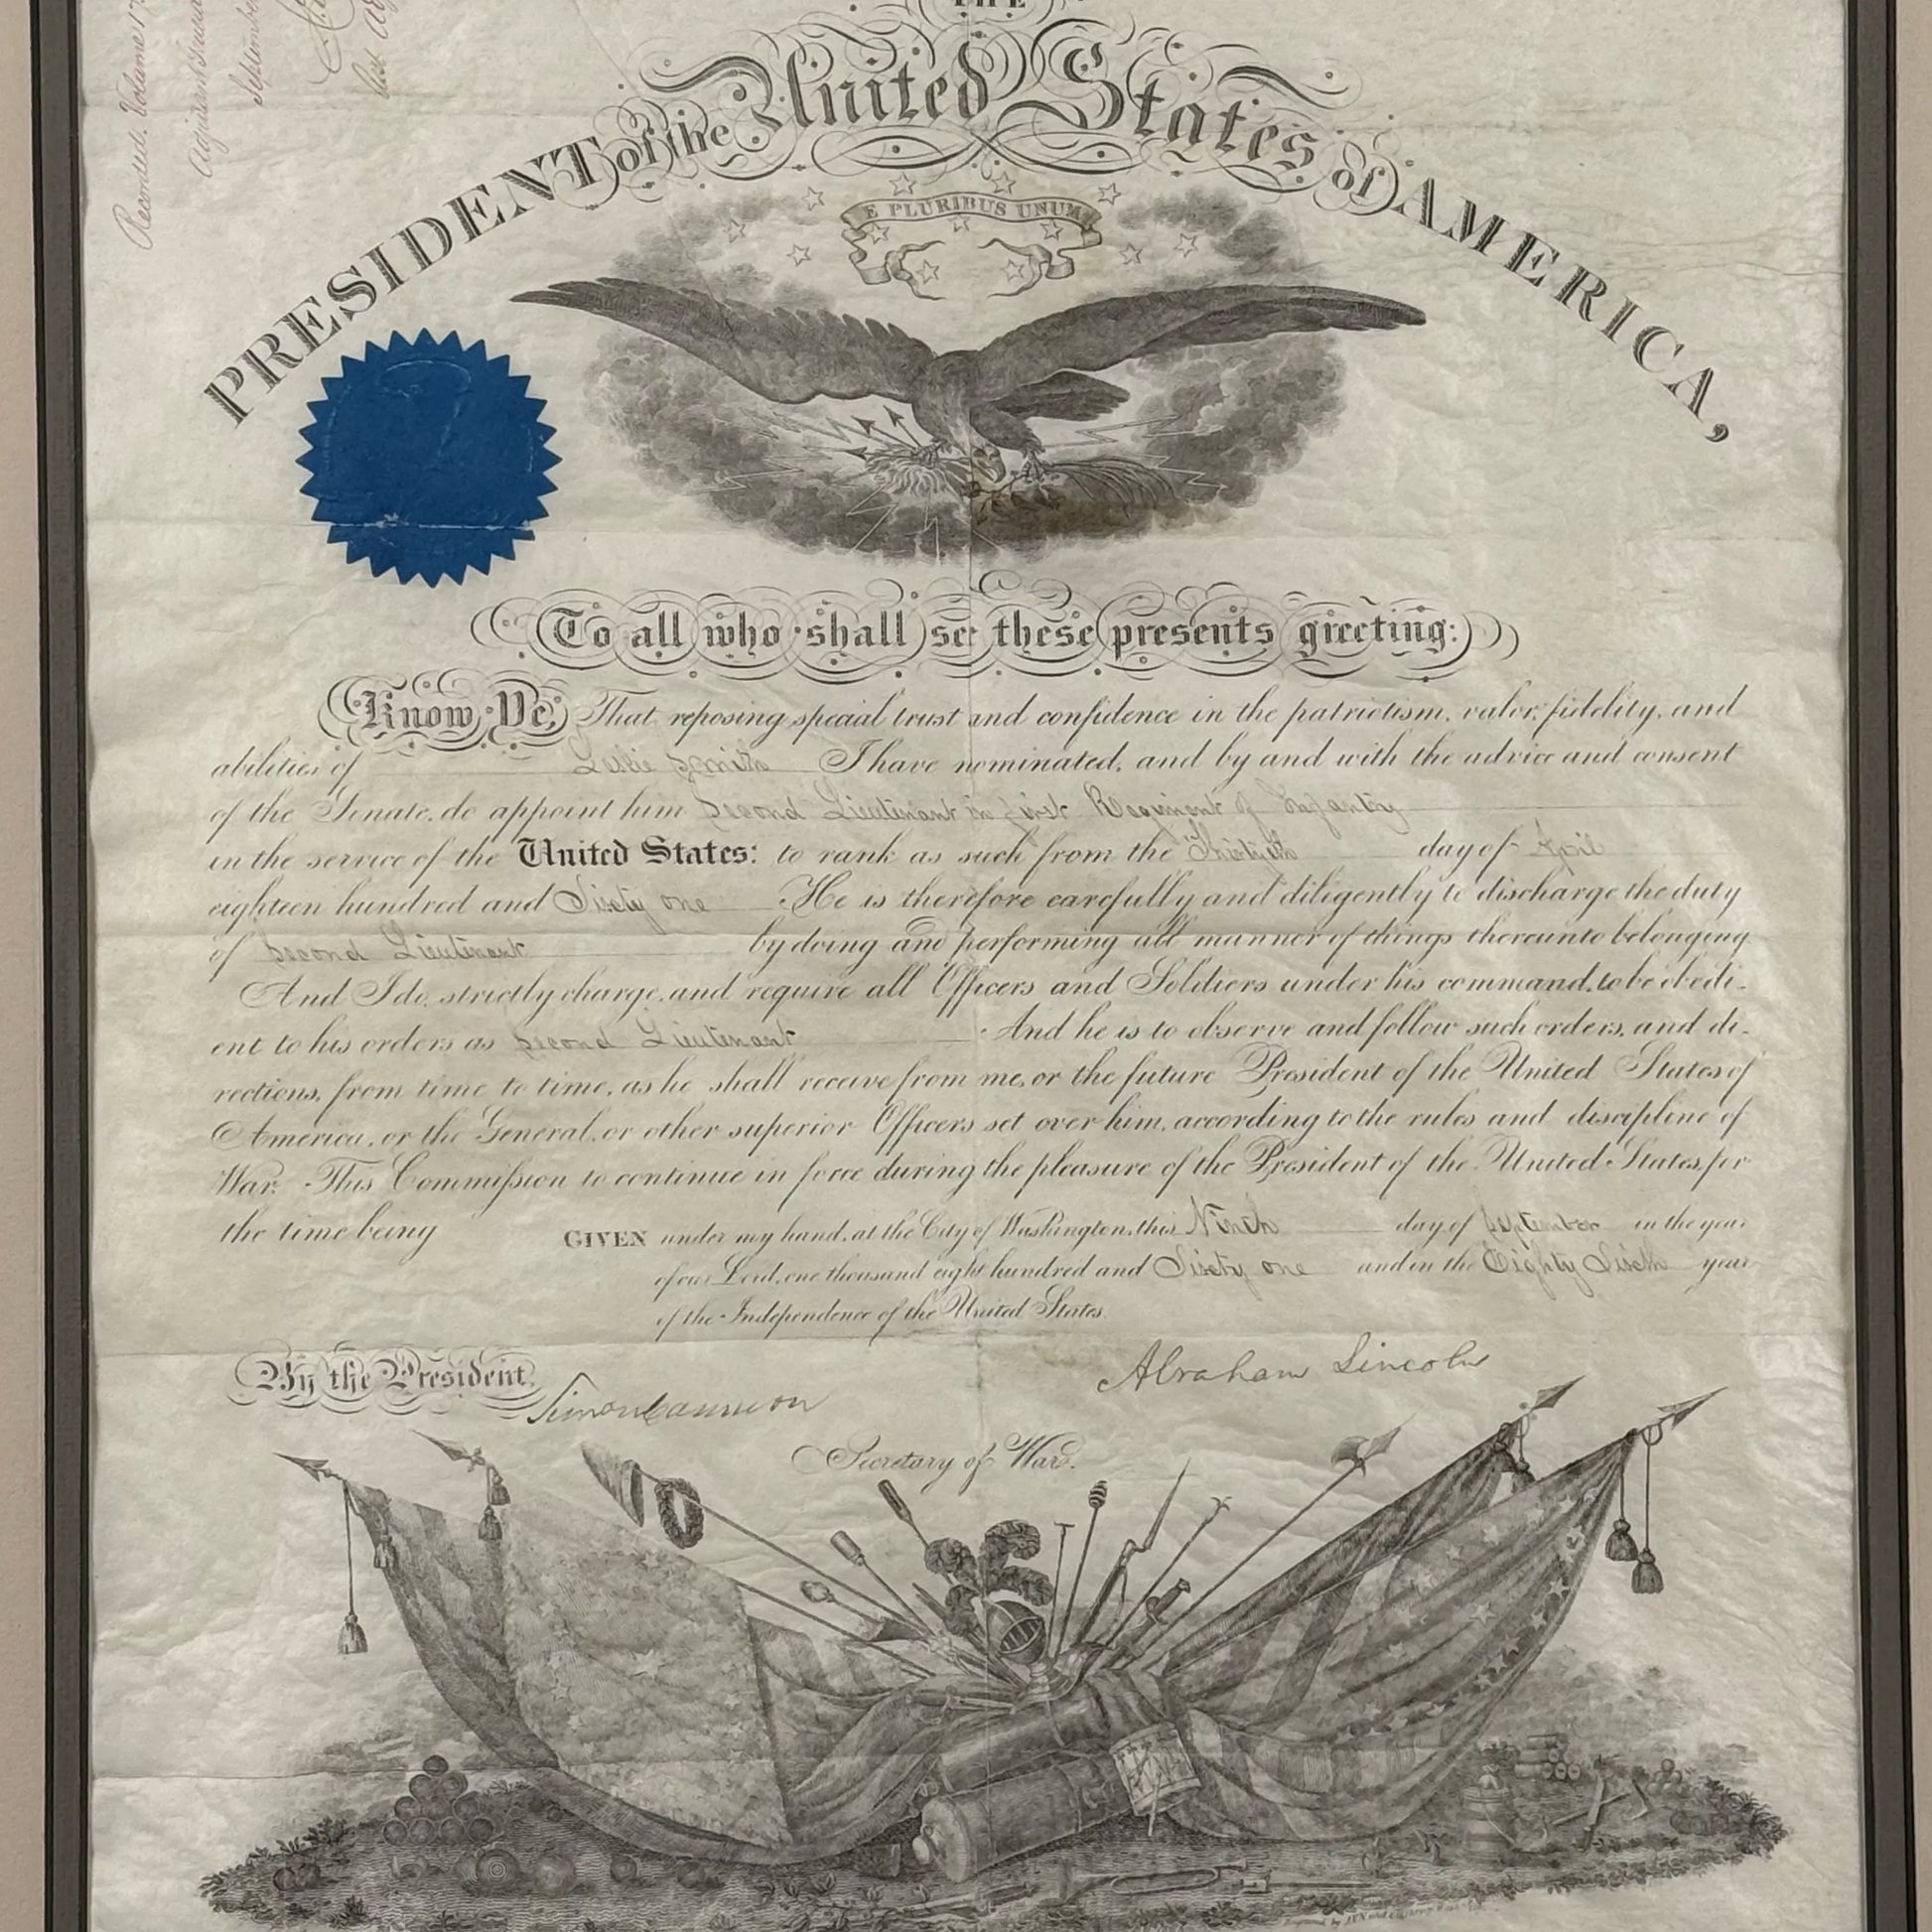 THE
PRESIDENT of the United States of AMERICA,
E PLURIBUS UNUM
Recorded. Volume
September
To all who shall see these presents greeting:
Know Ye, That reposing special trust and confidence in the patriotism, valor, fidelity, and
abilities of Leslie Smith I have nominated, and by and with the advice and consent
of the Senate, do appoint him Second Lieutenant in First Regiment of Infantry
in the service of the United States: to rank as such from the Thirtieth day of April
eighteen hundred and Sixty one He is therefore carefully and diligently to discharge the duty
of Second Lieutenant by doing and performing all manner of things thereunto belonging.
And I do, strictly charge, and require all Officers and Soldiers under his command, to be obedi-
ent to his orders as Second Lieutenant And he is to observe and follow such orders, and di-
rections, from time to time, as he shall receive from me, or the future President of the United States of
America, or the General, or other superior Officers set over him, according to the rules and discipline of
War. This Commission to continue in force during the pleasure of the President of the United States, for
the time being
GIVEN under my hand, at the City of Washington, this Ninth day of September in the year
of our Lord, one thousand eight hundred and Sixty one and in the Eighty Sixth year
of the Independence of the United States.
Abraham Lincoln
By the President,
Simon Cameron
Secretary of War.